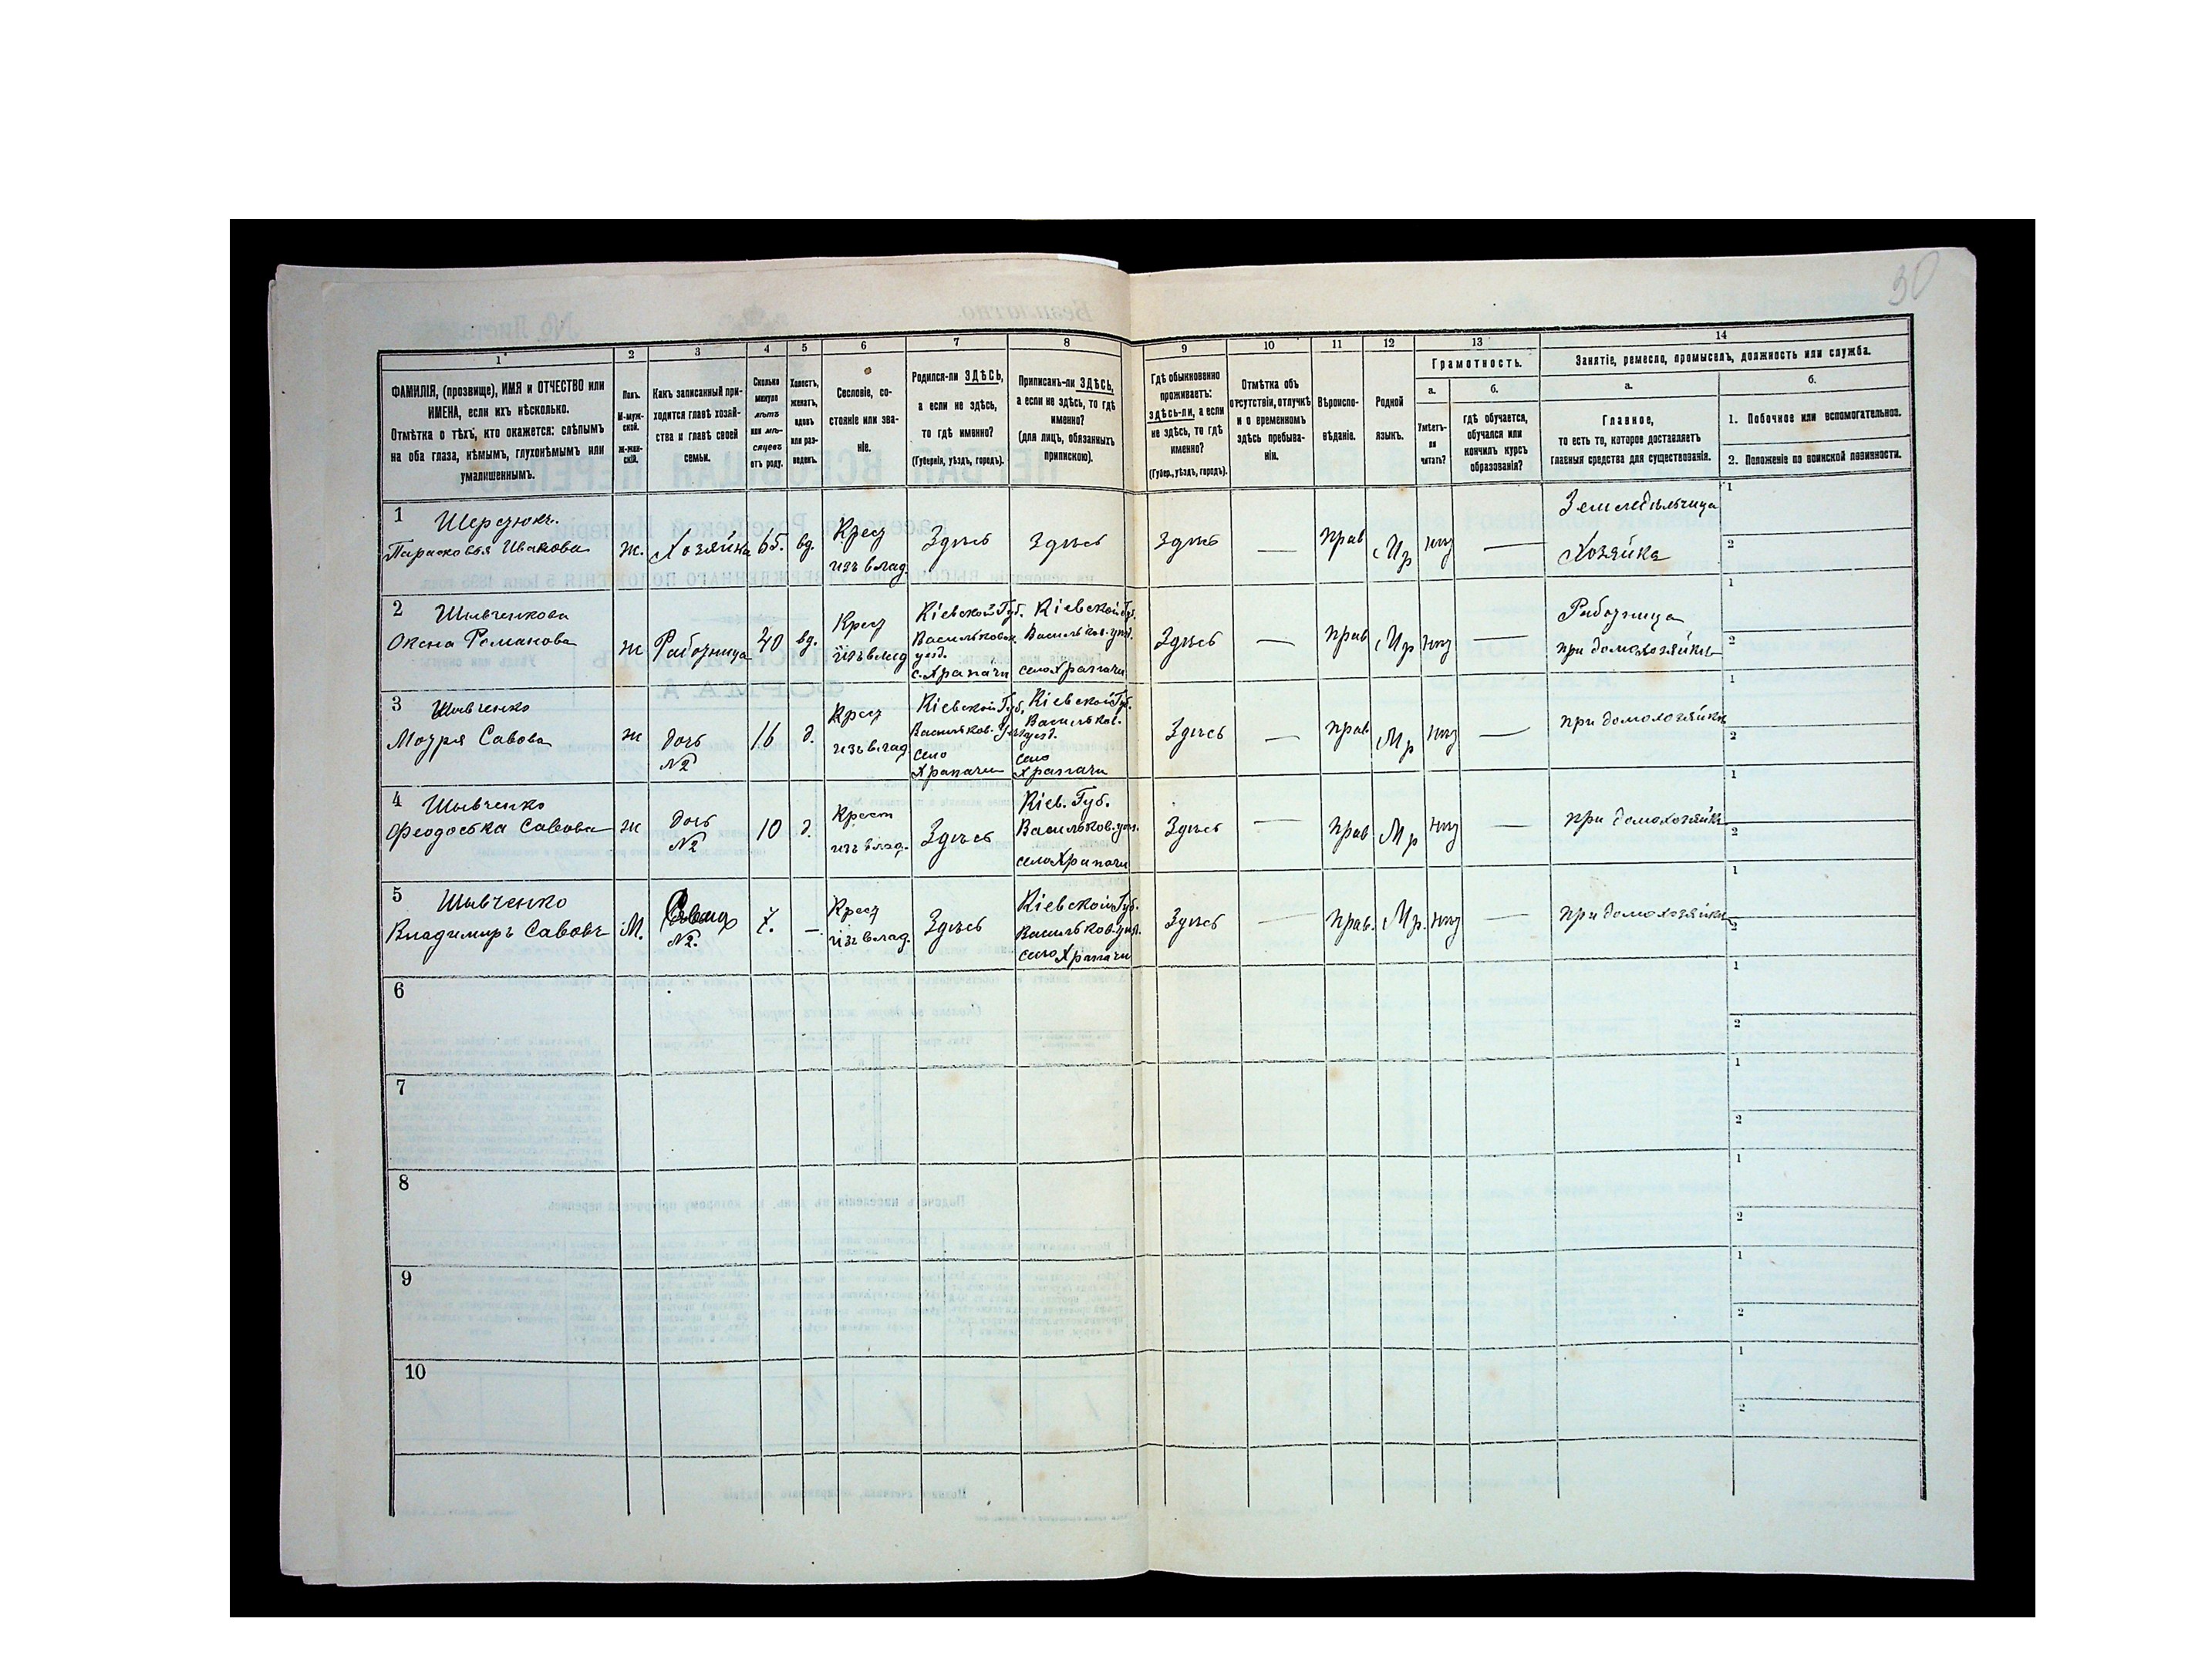 30
1 2 3 4 5 6 7 8 9 10 11 12 13 14
ФАМИЛІЯ, (прозвище), ИМЯ и ОТЧЕСТВО или
ИМЕНА, если ихъ нѣсколько.
Отмѣтка о тѣхъ, кто окажется: слѣпымъ
на оба глаза, нѣмымъ, глухонѣмымъ или
умалишеннымъ.
Полъ.
М-муж-
ской.
Ж-жен-
скій.
Какъ записанный при-
ходится главѣ хозяй-
ства и главѣ своей
семьи.
Сколько
минуло
лѣтъ
или мѣ-
сяцевъ
отъ роду.
Холостъ,
женатъ,
вдовъ
или раз-
веденъ.
Сословіе, со-
стояніе или зва-
ніе.
Родился-ли ЗДѢСЬ,
а если не здѣсь,
то гдѣ именно?
(Губернія, уѣздъ, городъ).
Приписанъ-ли ЗДѢСЬ,
а если не здѣсь, то гдѣ
именно?
(для лицъ, обязанныхъ
припискою).
Гдѣ обыкновенно
проживаетъ:
здѣсь-ли, а если
не здѣсь, то гдѣ
именно?
(Губер., уѣздъ, городъ).
Отмѣтка объ
отсутствіи, отлучкѣ
и о временномъ
здѣсь пребыва-
ніи.
Вѣроиспо-
вѣданіе.
Родной
языкъ.
Грамотность.
а.
Умѣетъ-
ли
читать?
б.
гдѣ обучается,
обучался или
кончилъ курсъ
образованія?
Занятіе, ремесло, промыселъ, должность или служба.
а.
Главное,
то есть то, которое доставляетъ
главныя средства для существованія.
б.
1. Побочное или вспомогательное.
2. Положеніе по воинской повинности.
1 Шерстюкъ.
Парасковья Иванова
ж. Хозяйка 65. вд.
Крест
изъ влад.
Здѣсь Здѣсь Здѣсь — прав Мр нѣт —
Земледѣльчица
Хозяйка
1
2
2 Шывченкова
Оксена Романова
ж Работница 40 вд.
Крест
изъ влад
Кіевской Губ.
Васильковск.
уезд.
с. Храпачи
Кіевской Губ.
Васильков. уезд.
село Храпачи
Здѣсь — прав Мр нѣт —
Работница
при домохозяйкѣ
1
2
3 Шывченко
Мотря Савова
ж
дочь
№2
16 д.
Крест
изъ влад
Кіевской Губ,
Васильков. уезд
село
Храпачи
Кіевской Губ.
Васильков.
уезд.
село
Храпачи
Здѣсь — прав Мр нѣт —
при домохозяйки
1
2
4 Шывченко
Феодоська Савова
ж
дочь
№2
10 д.
Крест
изъ влад.
Здѣсь
Кіев. Губ.
Васильков. уез.
село Храпачи
Здѣсь — прав Мр нѣт —
при домохозяйки
1
2
5 Шывченко
Владимиръ Савовъ
М.
№2.
7. —
Крест
изъ влад.
Здѣсь
Кіевской Губ.
Васильков. уез.
село Храпачи
Здѣсь — прав. Мр. нѣт —
при домохозяйки
1
2
6
1
2
7
1
2
8
1
2
9
1
2
10
1
2